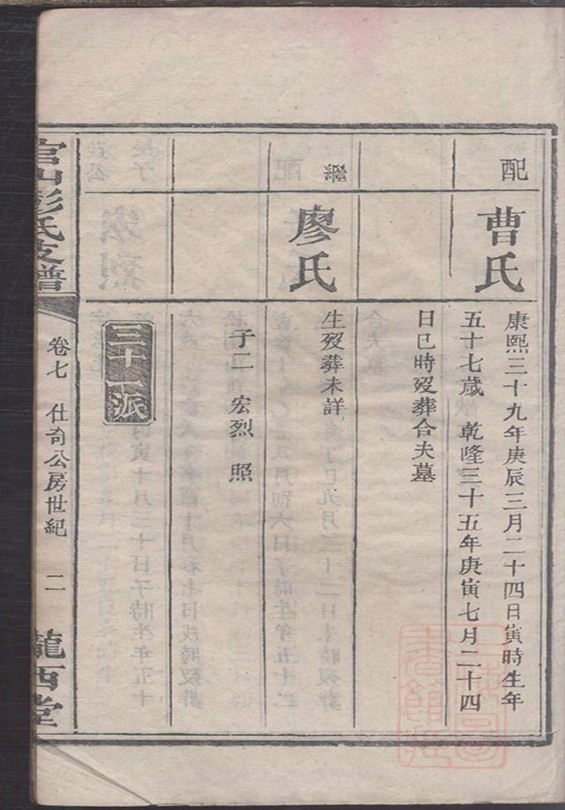 配
曹氏
康熙三十九年庚辰三月二十四日寅時生年
五十七歲 乾隆三十五年庚寅七月二十四
日巳時歿葬合夫墓
繼
廖氏
生歿葬未詳
子二 宏烈 照
三十一派
官山彭氏支譜
卷七 仕奇公房世紀 二
隴西堂